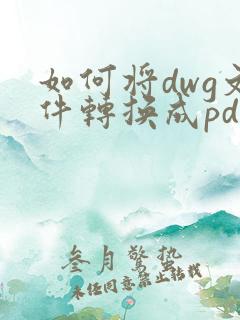 如何将dwg文
件轉换成pd
叁月驚蛰
未经同意禁止转载